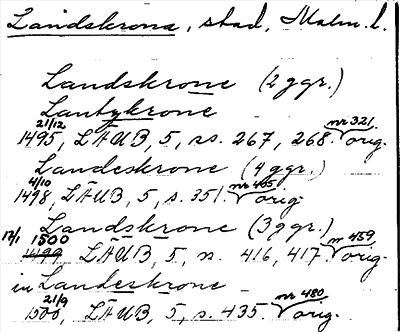 Landskrona, stad, Malm. l.
Landskrone (2 ggr.)
Lantzkrone
21/12 nr 321.
1495, LÄUB, 5, ss. 267, 268. orig.
Landeskrone (4 ggr.)
4/10 nr 405
1498, LÄUB, 5, s. 351. orig.
Landskrone (3 ggr.)
17/1 1500 nr 459
1499 LÄUB, 5, s. 416, 417. orig.
in Landeskrone
21/9 nr 480
1500, LÄUB, 5, s. 435. orig.